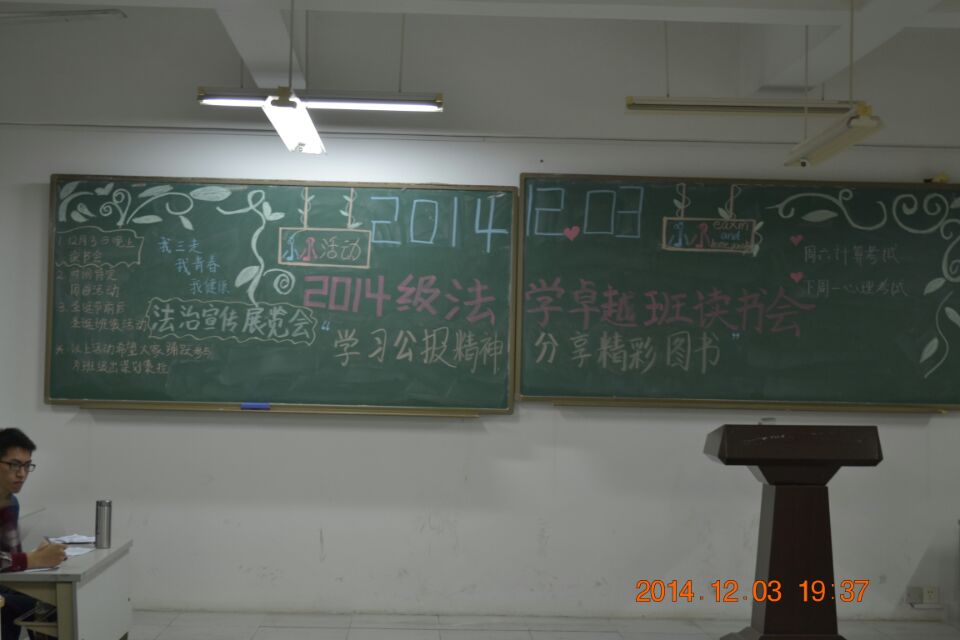 2014 12.03
小小活动
小小 exam and
1. 12月3日晚上
读书会
2. 时间待定
团日活动
3. 圣诞节前后
圣诞班委活动
* 以上活动希望大家踊跃参与
为班级出谋划策
我三走
我青春
我健康
法治宣传展览会
2014级法学卓越班读书会
“学习公报精神 分享精彩图书”
周六计算考试
下周一心理考试
2014.12.03 19:37